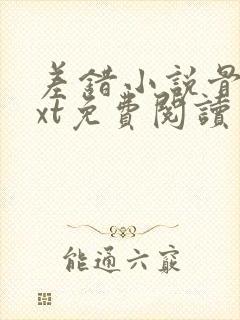 差錯小說骨
xt免費閱讀
能通六竅